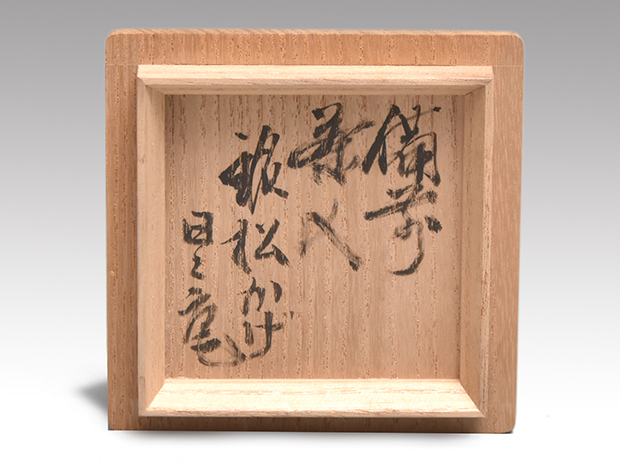 備前
茶入
銘松かげ
日々庵